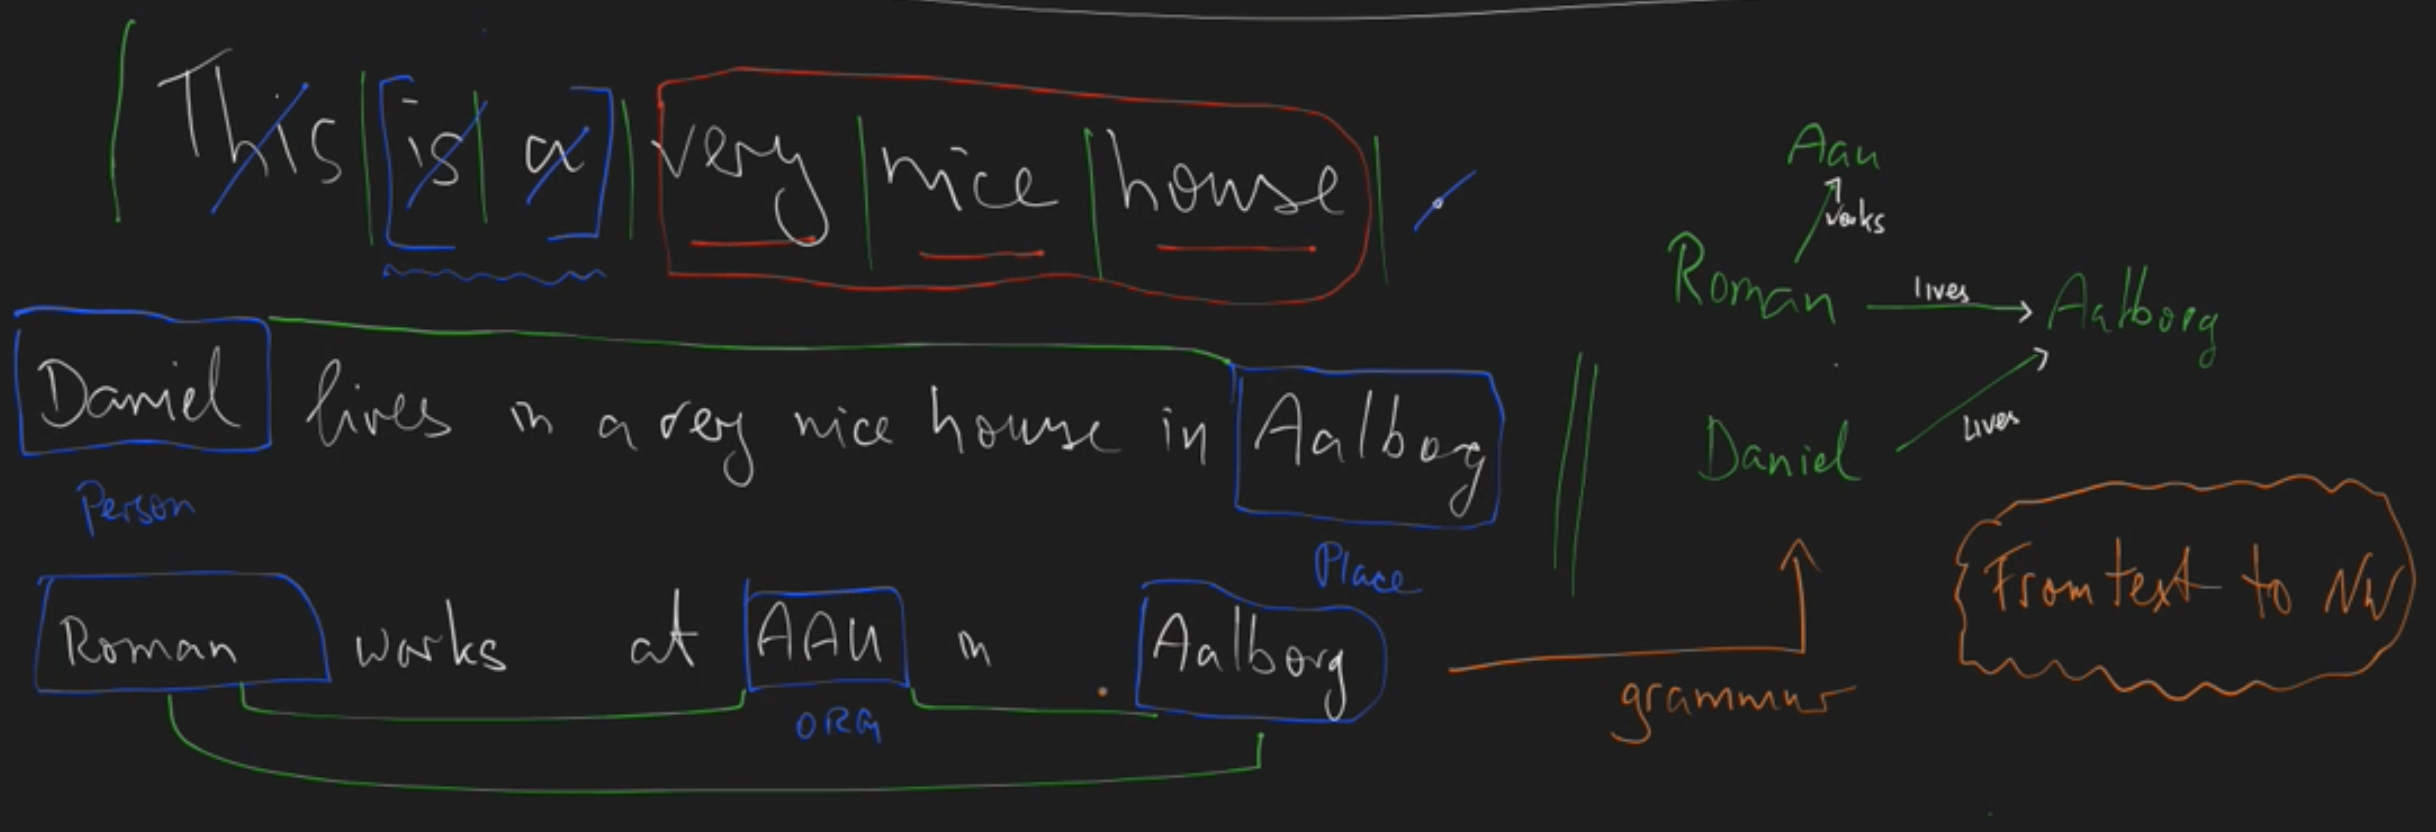 This is a very nice house .
Daniel lives in a very nice house in Aalborg
Person
Place
Roman works at AAU in Aalborg
ORG
Aau
works
Roman lives Aalborg
lives
Daniel
From text to NW
grammar